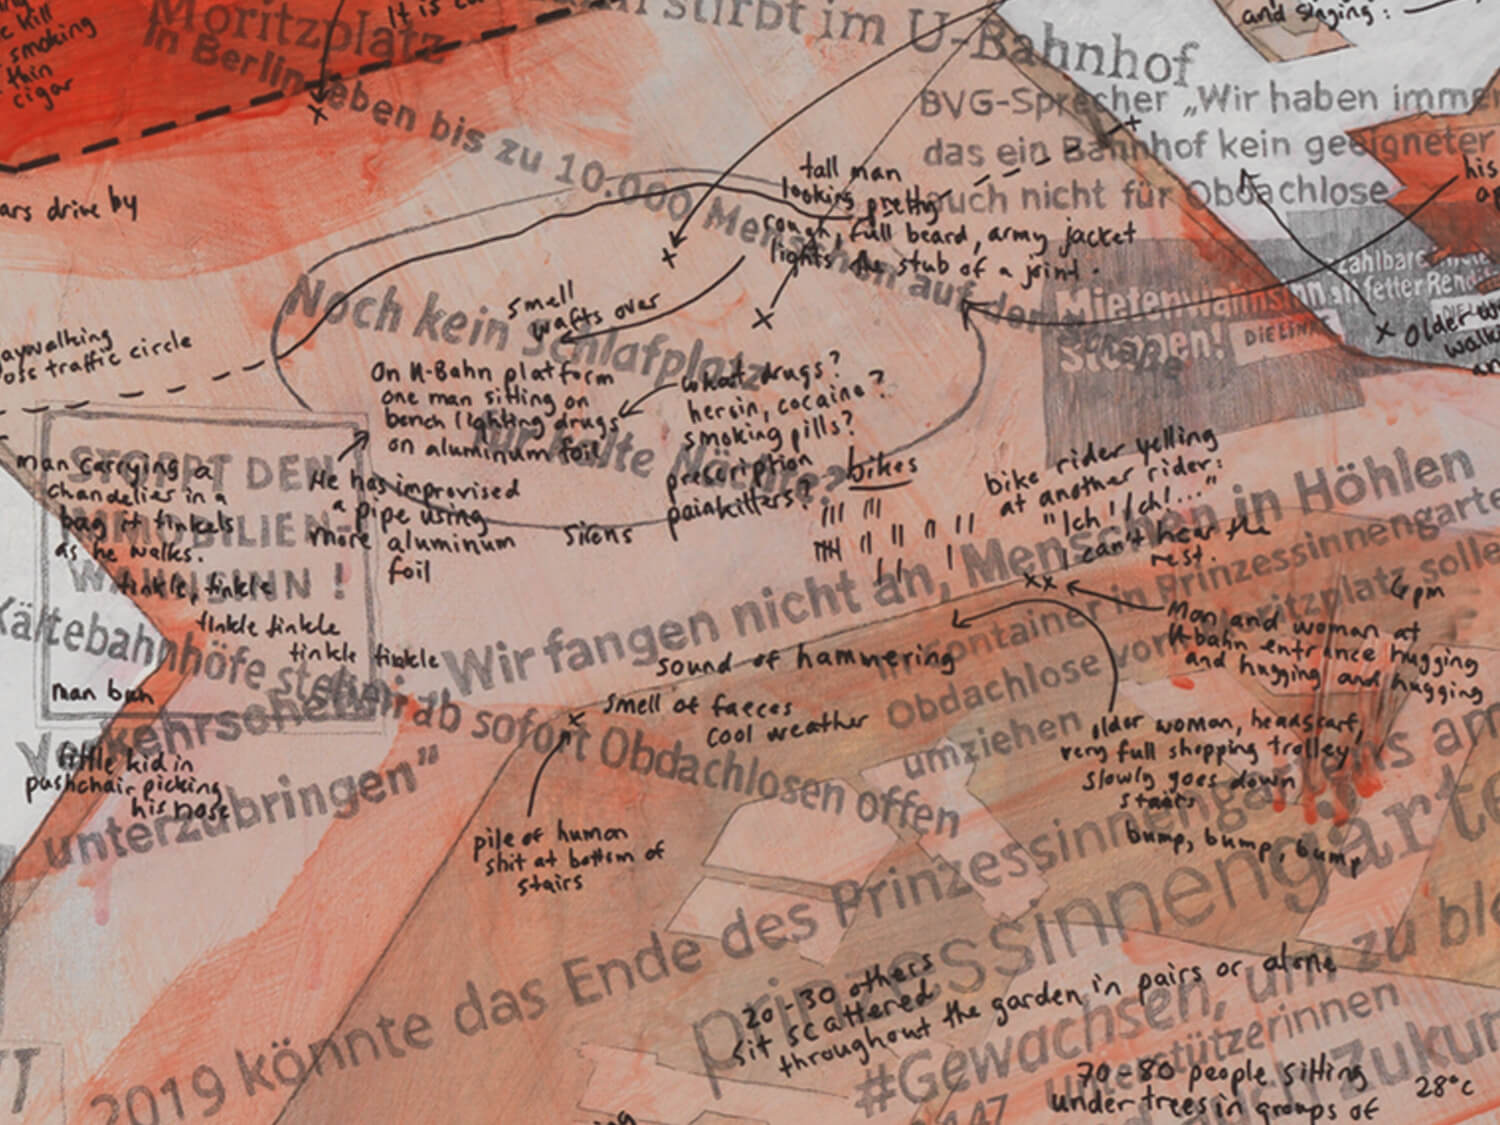 kill
smoking
thin
cigar
Moritzplatz
It is
stirbt im U-Bahnhof
and singing:
In Berlin leben bis zu 10.000 Menschen auf der Straße
BVG-Sprecher „Wir haben immer
das ein Bahnhof kein geeigneter
auch nicht für Obdachlose
his
ars drive by
tall man
looking pretty
rough, full beard, army jacket
lights the stub of a joint.
Noch kein Schlafplatz
für kalte Nächte?
smell
wafts over
Mietenwahnsinn
Stoppen!
DIE LINKE
zahlbare
fetter Rendi
aywalking
oss traffic circle
older
walki
an
On U-Bahn platform
one man sitting on
bench lighting drugs
on aluminum foil
what drugs?
heroin, cocaine?
smoking pills?
prescription
painkillers?
He has improvised
a pipe using
more aluminum
foil
sirens
bikes
bike rider yelling
at another rider:
"Ich! Ich!..."
can't hear the
rest.
STOPPT DEN
IMMOBILIEN-
WAHNSINN !
man carrying a
chandelier in a
bag it tinkels
as he walks.
tinkle, tinkle
tinkle tinkle
tinkle tinkle
man bun
Wir fangen nicht an, Menschen in Höhlen
unterzubringen"
Kältebahnhöfe stehen ab sofort Obdachlosen offen
Verkehrssenat
little kid in
pushchair picking
his nose
sound of hammering
smell of faeces
cool weather
pile of human
shit at bottom of
stairs
Container in Prinzessinnengarte
Obdachlose vor Moritzplatz solle
umziehen
6pm
Man and woman at
U-bahn entrance hugging
and hugging and hugging
older woman, headscarf,
very full shopping trolley
slowly goes down
stairs
bump, bump, bump
2019 könnte das Ende des Prinzessinnengartens am
prinzessinnengärte
20-30 others
sit scattered
throughout the garden in pairs or alone
#Gewachsen, um zu ble
unterstützerinnen
Zukun
147
70-80 people sitting
under trees in groups of
28°C